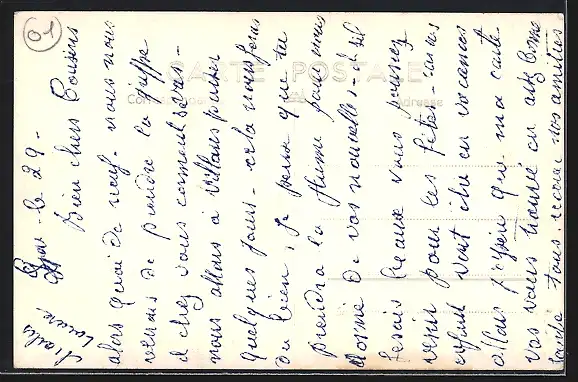 01
CARTE POSTALE
Correspondance
Adresse
le 29 -
Bien chers Cousins
alors quoi de neuf. nous nous
venons de prendre la grippe
de chez vous comment
nous allons à Villars passer
quelques jours - cela nous fera
du bien, je pense que tu
prendra la plume pour nous
donné de vos nouvelles, s'il
fesais beau vous pourriez
venir pour les fêtes - car les
enfant vont être en vacances
allais j'espère que ma carte
vas vous trouvé en
santé tous recevez nos amitiés